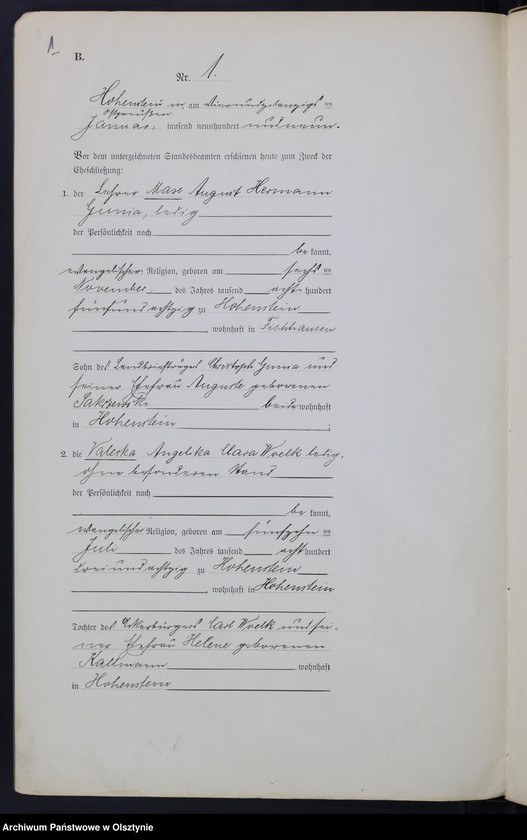 1
B.
Nr. 1.
Hohenstein in am vierundzwanzigsten
Ostpreußen
Januar tausend neunhundert und neun.
Vor dem unterzeichneten Standesbeamten erschienen heute zum Zweck der
Eheschließung:
1. der Lehrer Max August Hermann
Gunia, ledig
der Persönlichkeit nach
be kannt,
evangelischer Religion, geboren am sechsten
November des Jahres tausend acht hundert
fünfundachtzig zu Hohenstein
, wohnhaft in Fischhausen
Sohn des Landbriefträgers Christoph Gunia und
seiner Ehefrau Auguste geborenen
beide wohnhaft
in Hohenstein .
2. die Valeska Angelika Clara Woelk ledig,
ohne besonderen Stand
der Persönlichkeit nach
be kannt,
evangelischer Religion, geboren am fünfzehnten
Juli des Jahres tausend acht hundert
dreiundachtzig zu Hohenstein
, wohnhaft in Hohenstein
Tochter des Ackerbürgers Carl Woelk und sei-
ner Ehefrau Helene geborenen
Kallmann wohnhaft
in Hohenstein
Archiwum Państwowe w Olsztynie